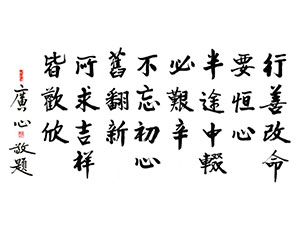 行善改命
要恒心
半途中輟
必艱辛
不忘初心
舊翻新
所求吉祥
皆歡欣
廣心敬題